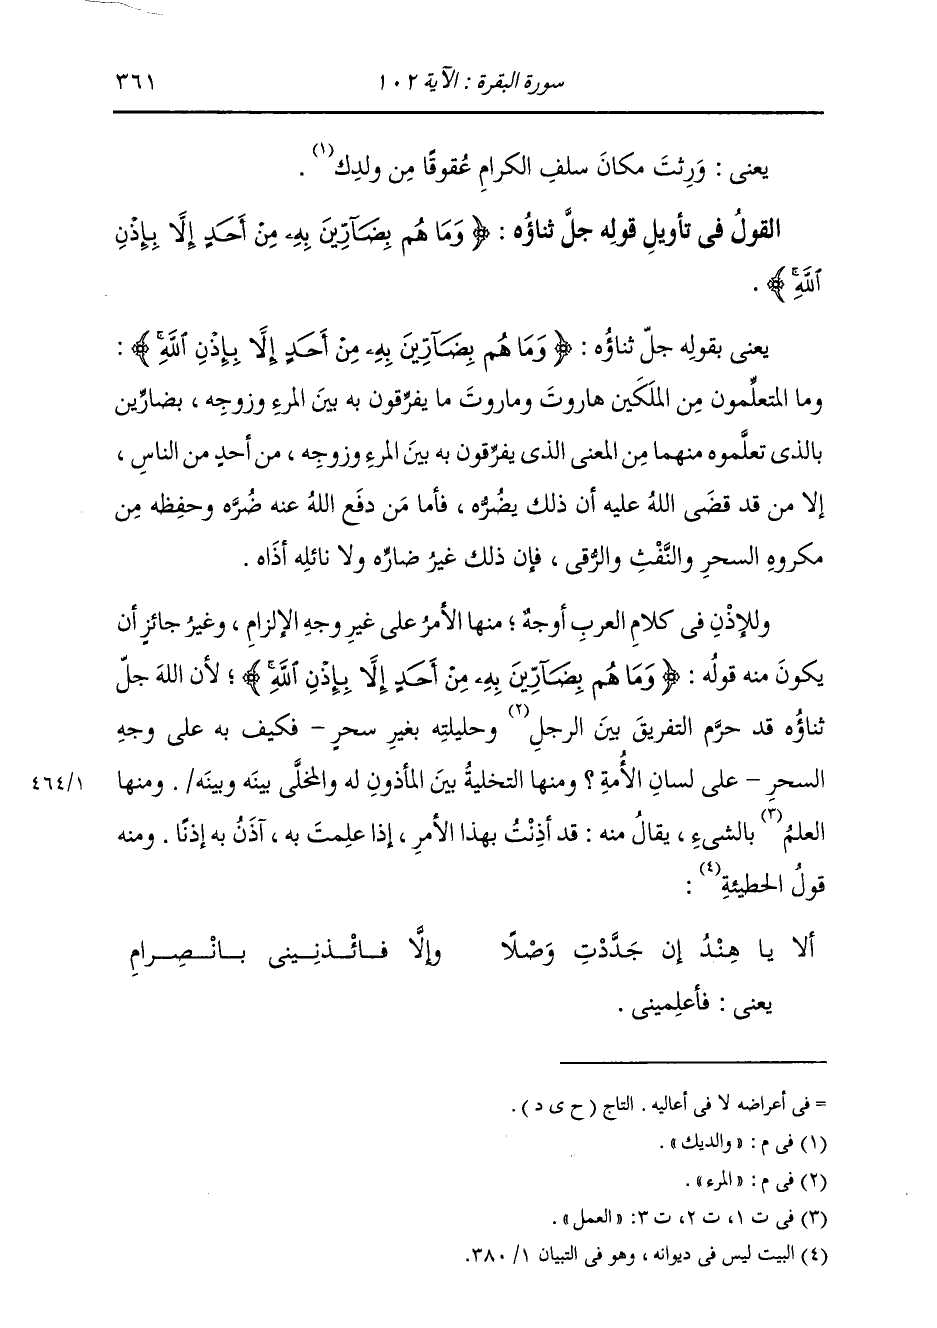 سورة البقرة : الآية ١٠٢ ٣٦١
يعنى : وَرِثتَ مكانَ سلفِ الكرامِ عُقوقًا مِن ولدِك(١) .
القولُ فى تأويلِ قولِه جلَّ ثناؤُه : ﴿ وَمَا هُم بِضَآرِّينَ بِهِۦ مِنْ أَحَدٍ إِلَّا بِإِذْنِ
ٱللَّهِۚ ﴾ .
يعنى بقولِه جلّ ثناؤُه : ﴿ وَمَا هُم بِضَآرِّينَ بِهِۦ مِنْ أَحَدٍ إِلَّا بِإِذْنِ ٱللَّهِۚ ﴾ :
وما المتعلِّمون مِن الملَكَين هاروتَ وماروتَ ما يفرِّقون به بينَ المرءِ وزوجِه ، بضارِّين
بالذى تعلَّموه منهما مِن المعنى الذى يفرِّقون به بينَ المرءِ وزوجِه ، من أحدٍ من الناسِ ،
إلا من قد قضَى اللهُ عليه أن ذلك يضُرُّه ، فأما مَن دفَع اللهُ عنه ضُرَّه وحفِظه مِن
مكروهِ السحرِ والنَّفْثِ والرُّقى ، فإن ذلك غيرُ ضارِّه ولا نائلِه أذَاه .
وللإذْنِ فى كلامِ العربِ أوجهٌ ؛ منها الأمرُ على غيرِ وجهِ الإلزامِ ، وغيرُ جائزٍ أن
يكونَ منه قولُه : ﴿ وَمَا هُم بِضَآرِّينَ بِهِۦ مِنْ أَحَدٍ إِلَّا بِإِذْنِ ٱللَّهِۚ ﴾ ؛ لأن اللهَ جلّ
ثناؤُه قد حرَّم التفريقَ بينَ الرجلِ(٢) وحليلتِه بغيرِ سحرٍ - فكيف به على وجهِ
السحرِ - على لسانِ الأُمةِ ؟ ومنها التخليةُ بينَ المأذونِ له والمخلَّى بينَه وبينَه/ . ومنها ٤٦٤/١
العلمُ(٣) بالشىءِ ، يقالُ منه : قد أذِنْتُ بهذا الأمرِ ، إذا علِمتَ به ، آذَنُ به إذنًا . ومنه
قولُ الحطيئةِ(٤) :
ألا يا هِنْدُ إن جَدَّدْتِ وَصْلًا وإلَّا فائْذنِينى بانْصِرامِ
يعنى : فأعلِمينى .
= فى أعراضه لا فى أعاليه . التاج ( ح ى د ) .
(١) فى م : « والديك » .
(٢) فى م : « المرء » .
(٣) فى ت ١، ت ٢، ت ٣: « العمل » .
(٤) البيت ليس فى ديوانه ، وهو فى التبيان ١/ ٣٨٠.